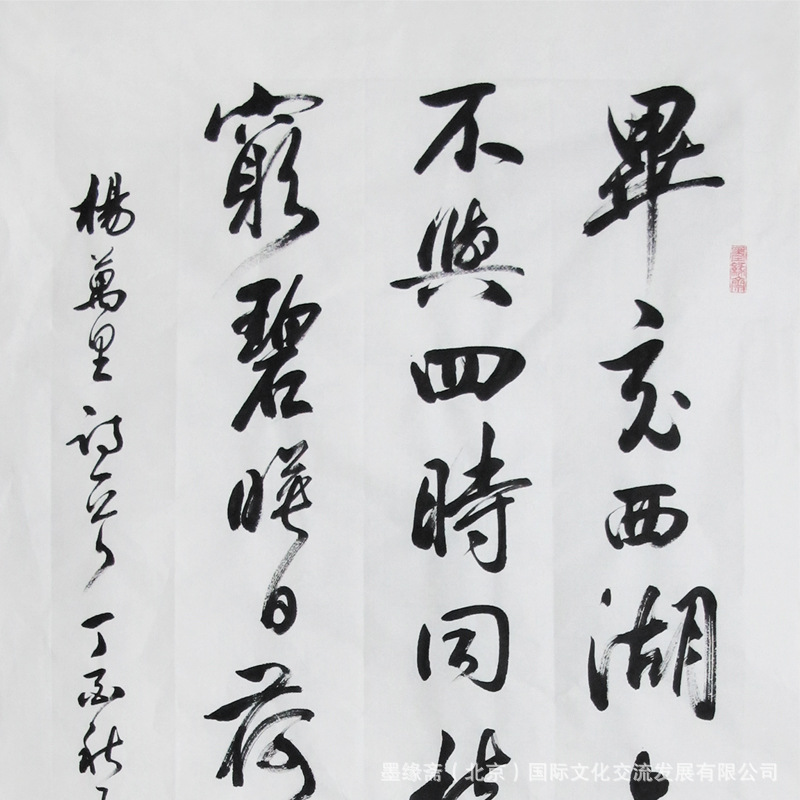 畢竟西湖
不與四時同接
窮碧暎日荷
楊萬里詩一首丁酉秋
墨缘斋（北京）国际文化交流发展有限公司